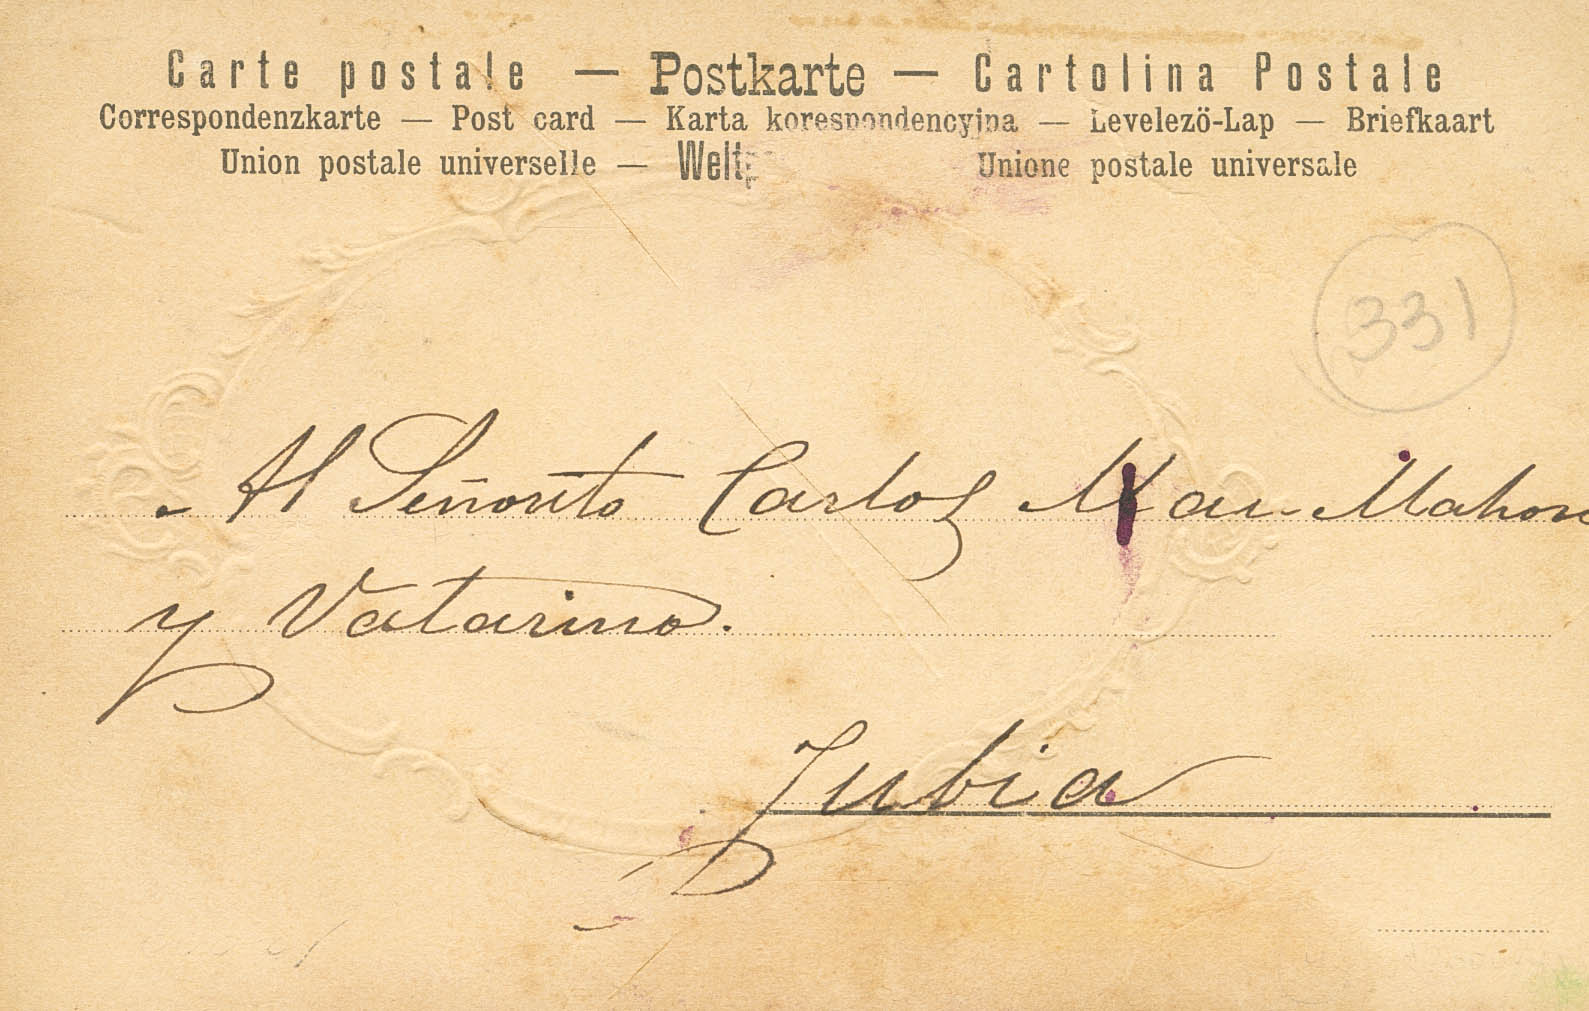 Carte postale — Postkarte — Cartolina Postale
Correspondenzkarte — Post card — Karta korespondencyjna — Levelezö-Lap — Briefkaart
Union postale universelle — Weltp Unione postale universale
331
Al Señorito Carlos Mac-Mahon
y Vatarino.
Jubia